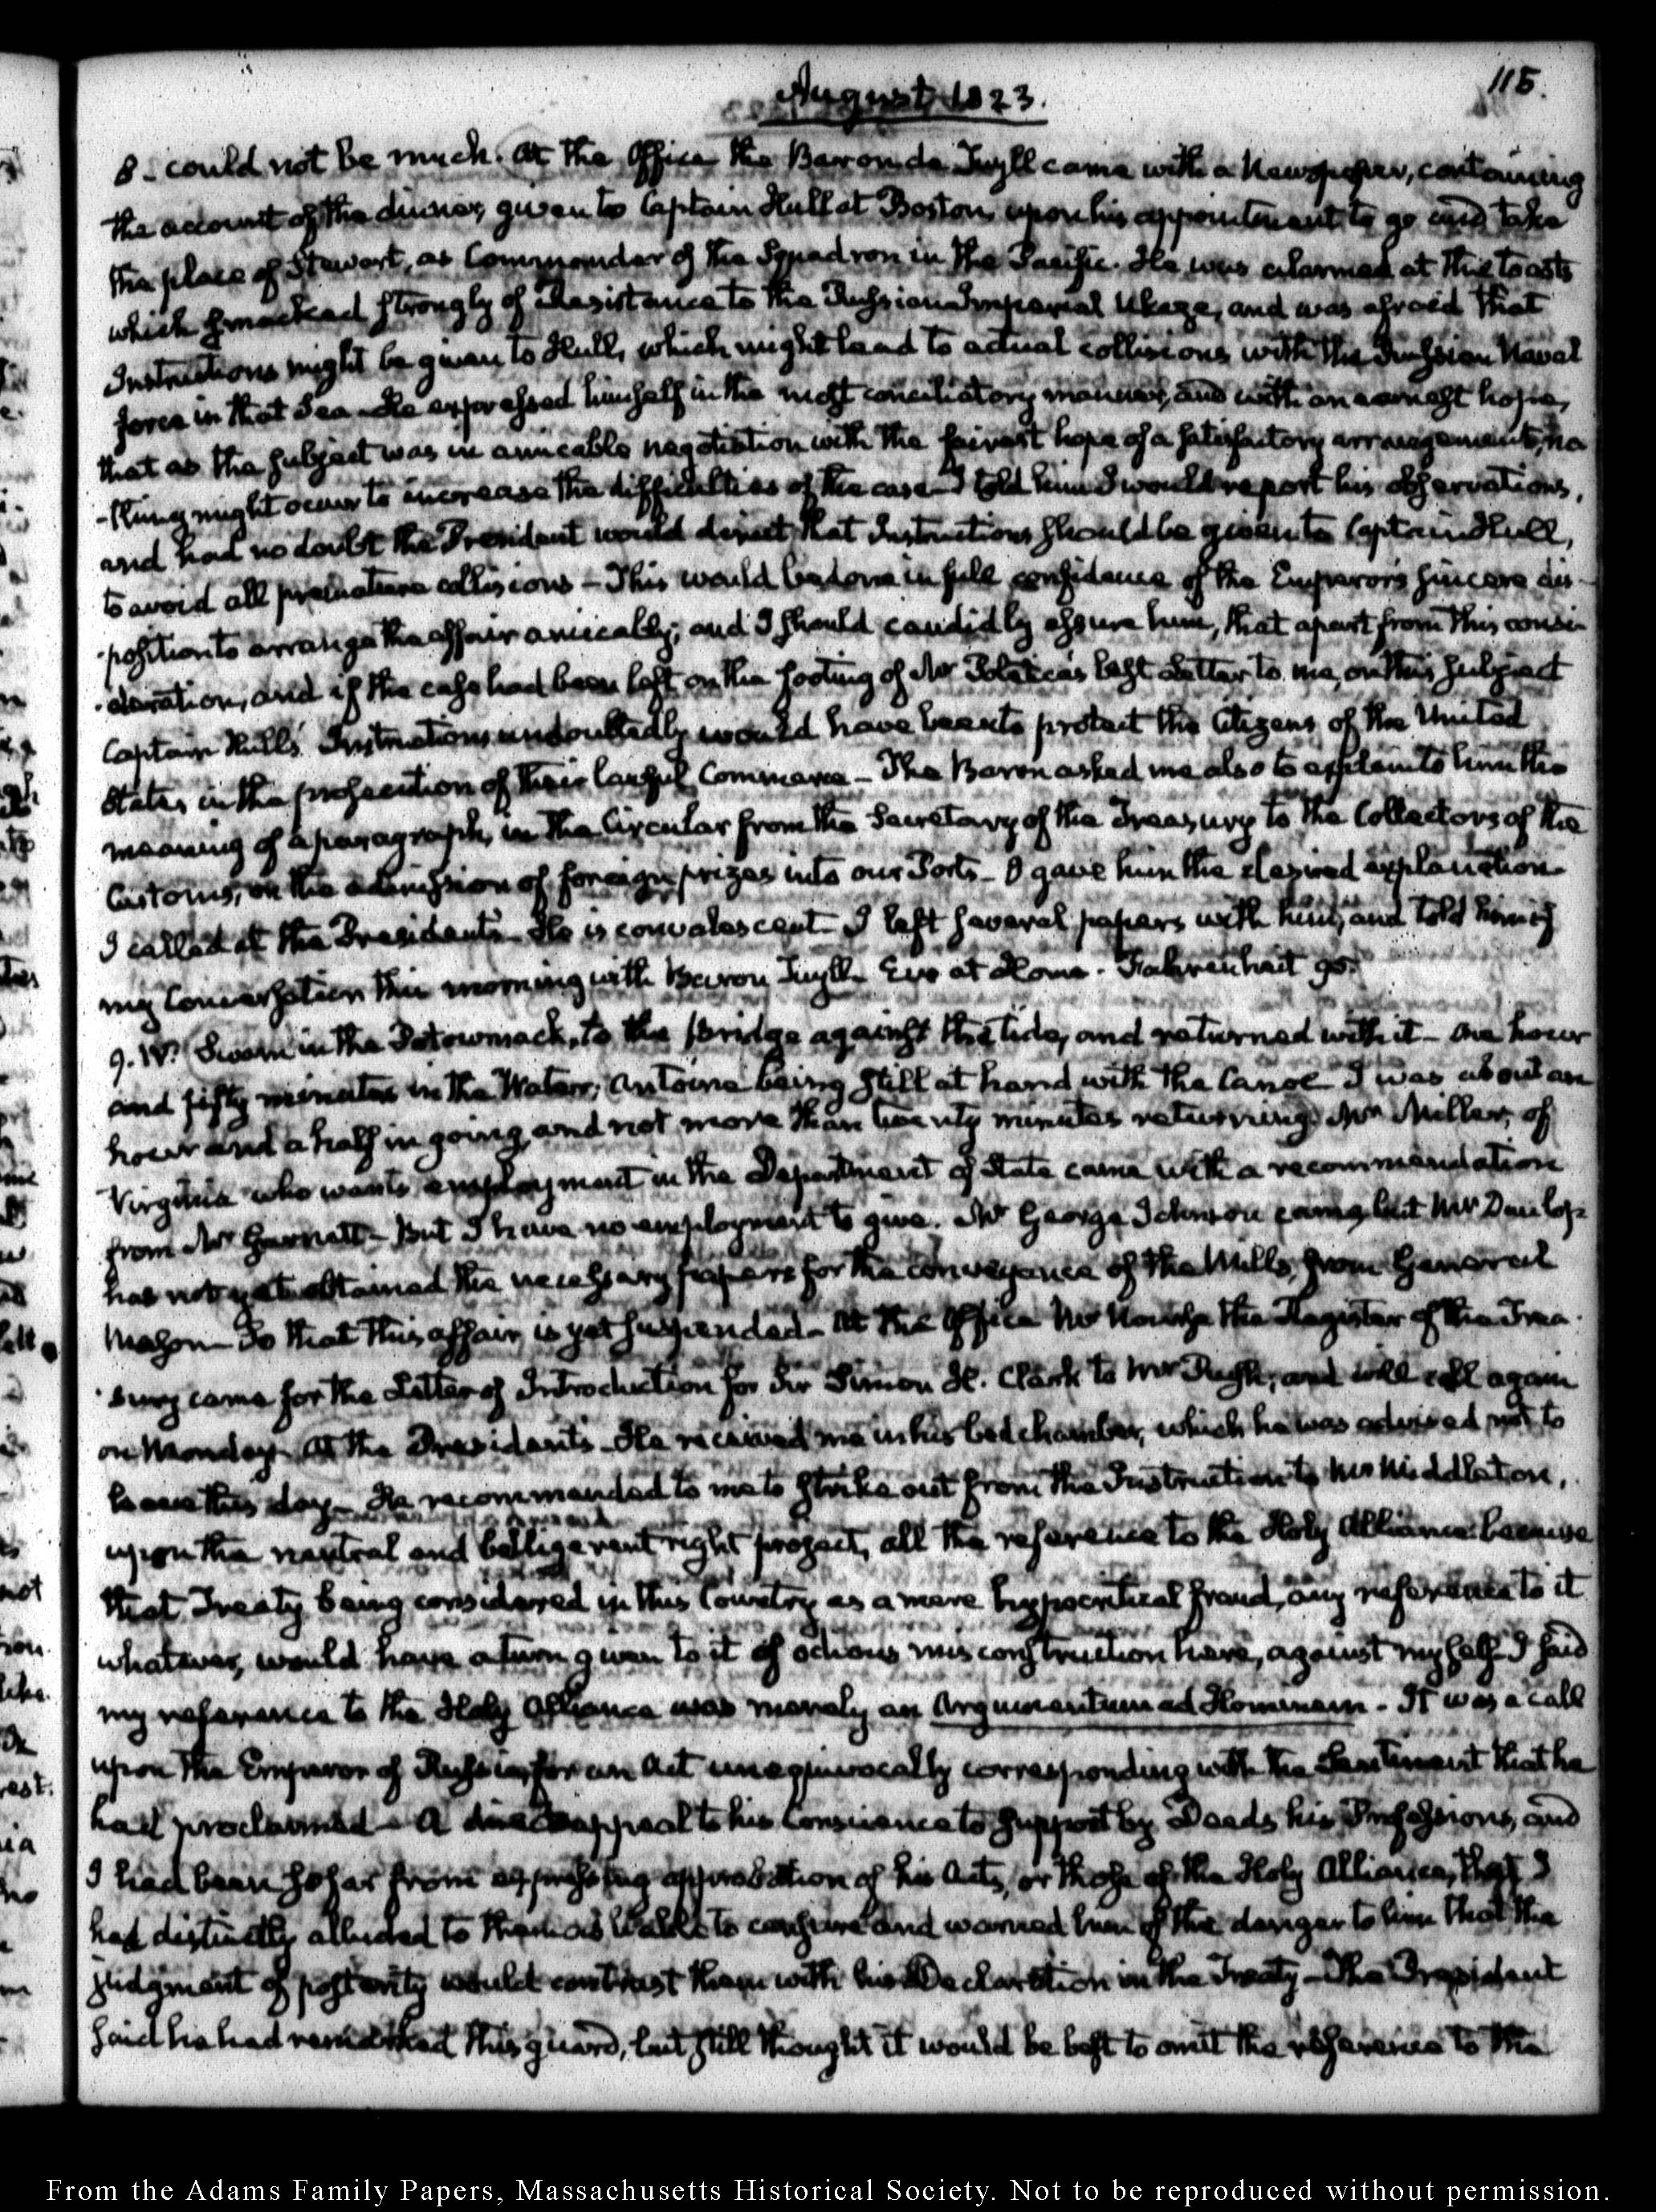 August 1823.
115.
8 - could not be much. At the Office the Baron de Tuyll came with a Newspaper, containing
the account of the dinner, given to Captain Hull at Boston, upon his appointment to go and take
the place of Stewart, as Commander of the Squadron in the Pacific. He was alarmed at the toasts
which smacked strongly of Resistance to the Russian Imperial Ukaze, and was afraid that
Instructions might be given to Hull, which might lead to actual collisions with the Russian Naval
force in that Sea - He expressed himself in the most conciliatory manner, and with an earnest hope,
that as the subject was in amicable negotiation with the fairest hope of a satisfactory arrangement, no
-thing might occur to increase the difficulties of the case - I told him I would report his observations,
and had no doubt the President would direct that Instructions should be given to Captain Hull,
to avoid all premature collisions - This would be done in full confidence of the Emperor's sincere dis-
-position to arrange the affair amicably; and I should candidly assure him, that apart from this consi-
-deration, and if the case had been left on the footing of Mr Poletica's last Letter to me, on this subject
Captain Hull's Instructions undoubtedly would have been to protect the Citizens of the United
States in the prosecution of their lawful Commerce - The Baron asked me also to explain to him the
meaning of a paragraph, in the Circular from the Secretary of the Treasury to the Collectors of the
Customs, on the admission of foreign prizes into our Ports - I gave him the desired explanation -
I called at the President's - He is convalescent - I left several papers with him, and told him of
my Conversation this morning with Baron Tuyll - Eve at Home. Fahrenheit 90.
9. IV. Swam in the Potowmack, to the bridge against the tide, and returned with it - one hour
and fifty minutes in the Water; Antoine being still at hand with the Canoe - I was about an
hour and a half in going, and not more than twenty minutes returning. Mr Miller, of
Virginia who wants employment in the Department of State came with a recommendation
from Mr Garnett - But I have no employment to give. Mr George Johnson came, but Mr Dunlop
has not yet obtained the necessary papers for the conveyance of the Mills, from General
Mason - So that this affair is yet suspended - At the Office Mr Nourse the Register of the Trea-
-sury came for the Letter of Introduction for Sir Simon H. Clark to Mr Rush; and will call again
on Monday - At the President's - He received me in his bedchamber, which he was advised not to
leave this day - He recommended to me to strike out from the Instruction to Mr Middleton,
upon the neutral and belligerent right project, all the reference to the Holy Alliance because
that Treaty being considered in this Country as a mere hypocritical fraud, any reference to it
whatever, would have a turn given to it of odious misconstruction here, against myself - I said
my reference to the Holy Alliance was merely an Argumentum ad Hominem - It was a call
upon the Emperor of Russia, for an Act unequivocally corresponding with the Sentiment that he
had proclaimed - A direct appeal to his Conscience to support by Deeds his Professions, and
I had been so far from expressing approbation of his Acts, or those of the Holy Alliance, that I
had distinctly alluded to them as liable to censure and warned him of the danger to him that the
judgment of posterity would contrast them with his Declaration in the Treaty - The President
said he had remarked this guard, but still thought it would be best to omit the reference to the
From the Adams Family Papers, Massachusetts Historical Society. Not to be reproduced without permission.